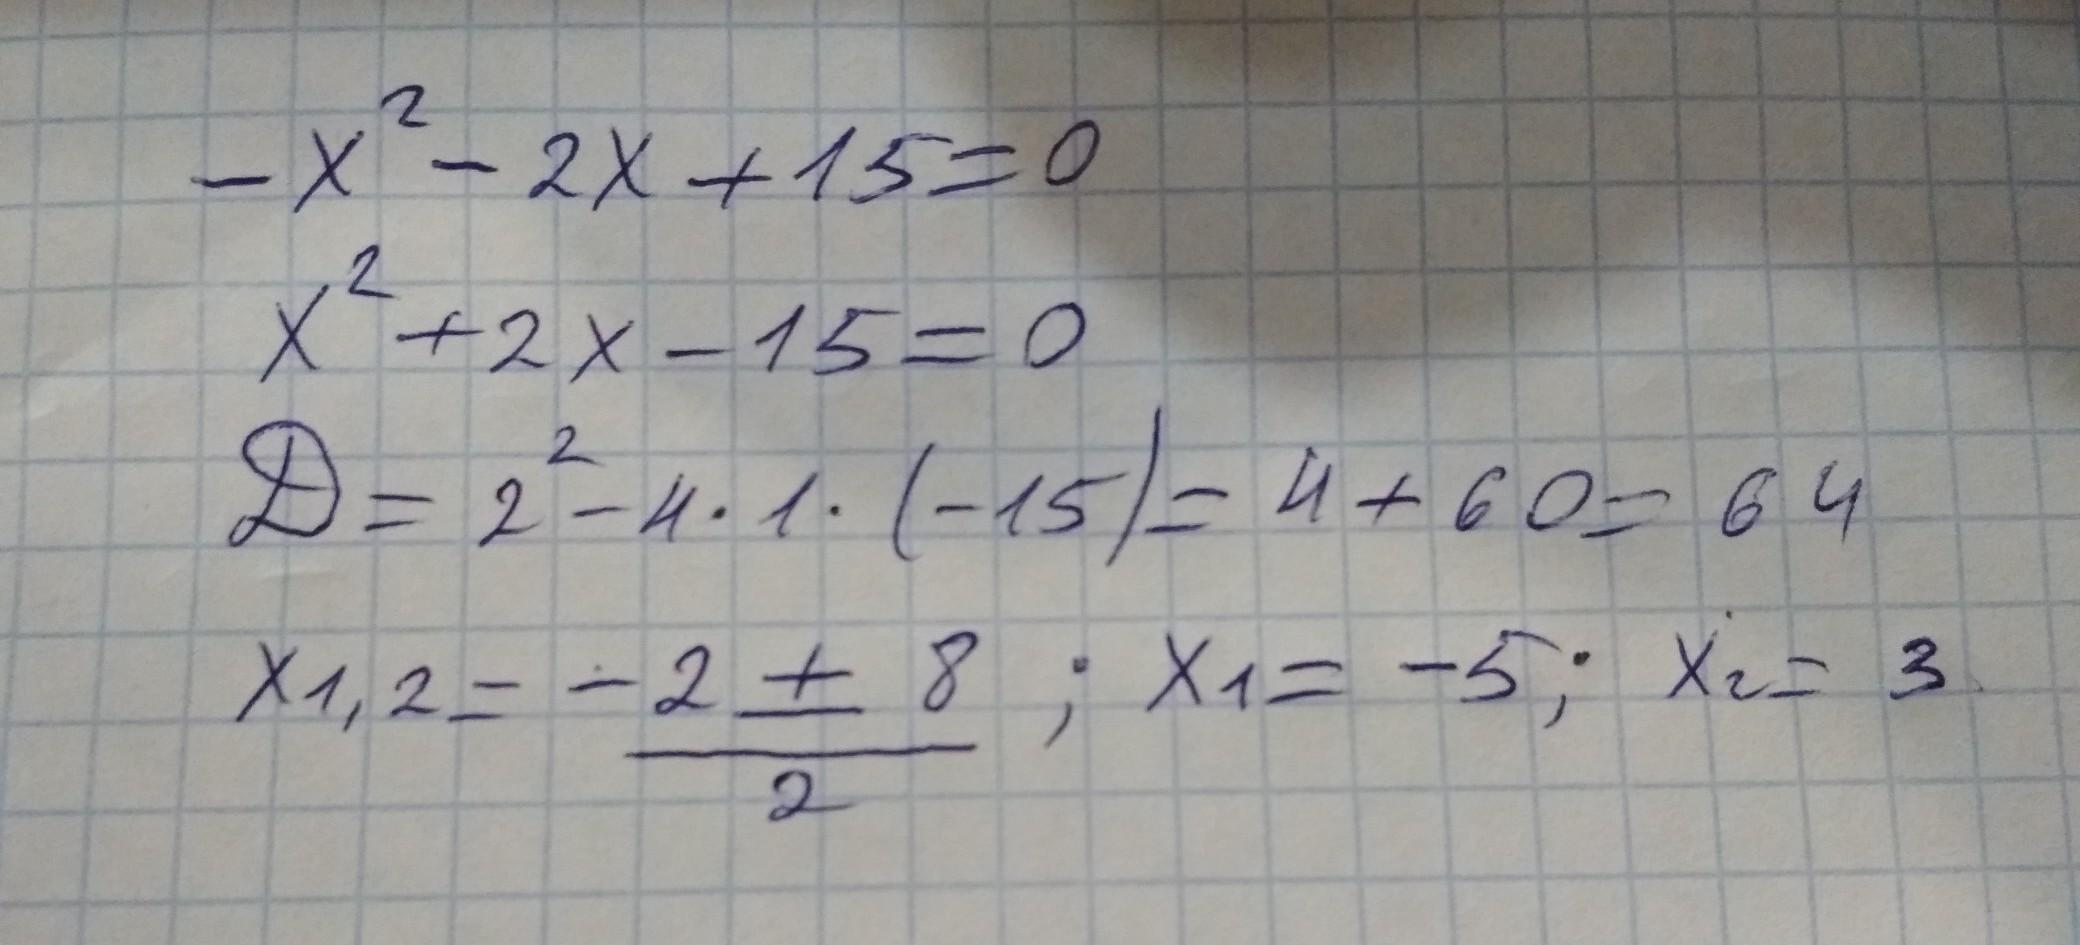 -x² - 2x + 15 = 0
x² + 2x - 15 = 0
D = 2² - 4 · 1 · (-15) = 4 + 60 = 64
x₁,₂ = (-2 ± 8)/2 ; x₁ = -5; x₂ = 3